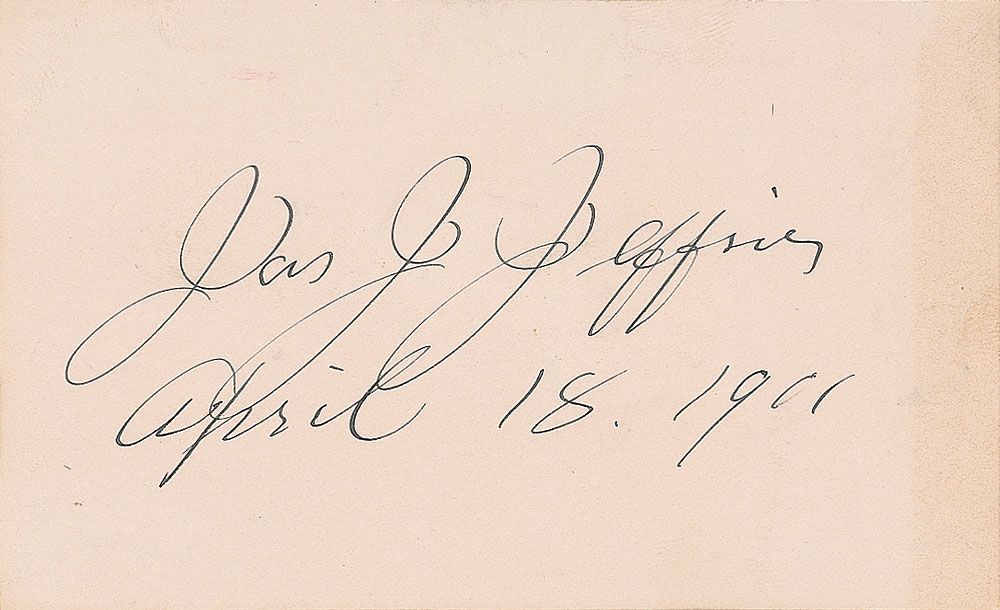 Jas J Jeffries
April 18. 1911